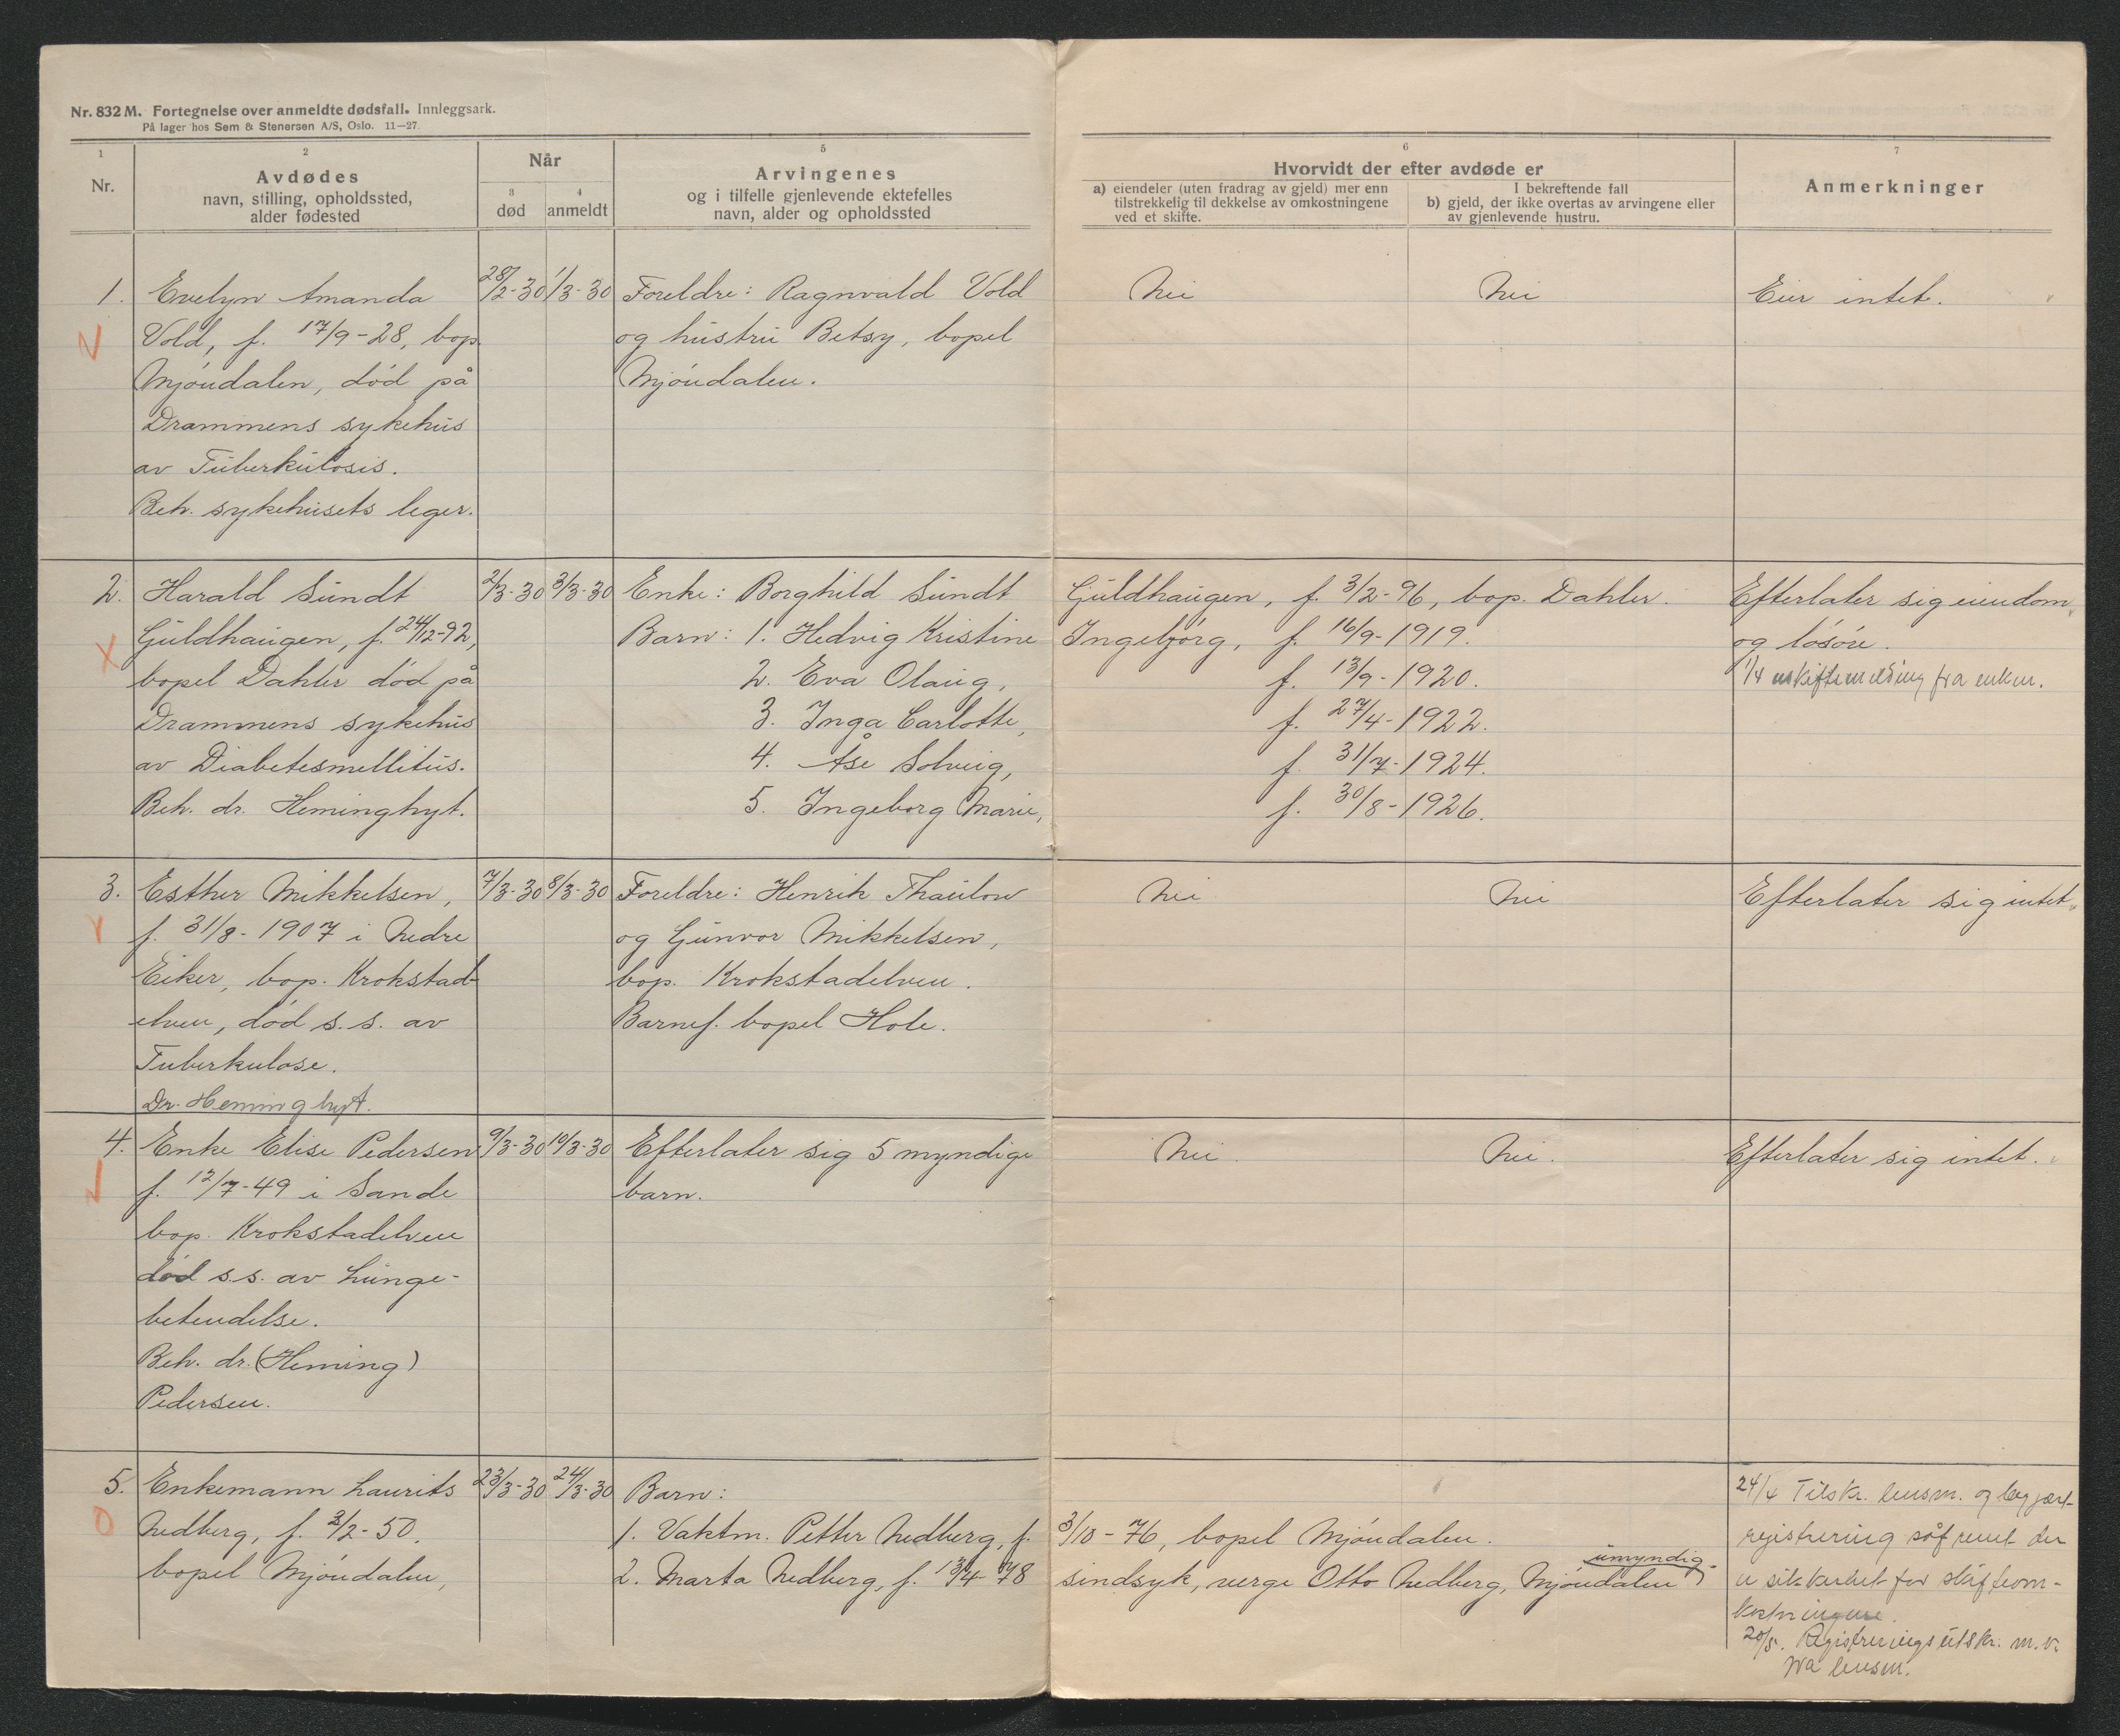 Nr. 832 M. Fortegnelse over anmeldte dødsfall. Innleggsark.
På lager hos Sem & Stenersen A/S, Oslo. 11—27.
1
Nr.
2
Avdødes
navn, stilling, opholdssted,
alder fødested
Når
3
død
4
anmeldt
5
Arvingenes
og i tilfelle gjenlevende ektefelles
navn, alder og opholdssted
6
Hvorvidt der efter avdøde er
a) eiendeler (uten fradrag av gjeld) mer enn
tilstrekkelig til dekkelse av omkostningene
ved et skifte.
I bekreftende fall
b) gjeld, der ikke overtas av arvingene eller
av gjenlevende hustru.
7
Anmerkninger
1.
Evelyn Amanda
Vold, f. 17/9-28, bop.
Mjøndalen, død på
Drammens sykehus
av Tuberkulosis.
Beh. sykehusets leger.
28/2-30
1/3-30
Foreldre: Ragnvald Vold
og hustru Betsy, bopel
Mjøndalen.
Nei
Nei
Eier intet.
2.
Harald Sundt
Guldhaugen, f. 24/12-92,
bopel Dahler død på
Drammens sykehus
av Diabetesmellitus.
Beh. dr. Heminghyt.
2/3-30
3/3-30
Enke: Borghild Sundt Guldhaugen, f. 3/2-96, bop. Dahler.
Barn: 1. Hedvig Kristine Ingebjørg, f. 16/9-1919.
2. Eva Olaug, f. 13/9-1920.
3. Inga Carlotte, f. 27/4-1922.
4. Åse Solveig, f. 31/7-1924.
5. Ingeborg Marie, f. 30/8-1926.
Efterlater sig eiendom
og løsøre.
1/4 uskiftemelding fra enken.
3.
Esther Mikkelsen,
f. 31/8-1907 i Nedre
Eiker, bop. Krokstad-
elven, død s.s. av
Tuberkulose.
Dr. Heminghyt.
7/3-30
8/3-30
Foreldre: Henrik Thaulow
og Gunvor Mikkelsen,
bop. Krokstadelven.
Barnef. bopel Hole.
Nei
Nei
Efterlater sig intet.
4.
Enke Elise Pedersen
f. 12/7-49 i Sande
bop. Krokstadelven
død s.s. av Lunge-
betendelse.
Beh. dr. (Heming)
Pedersen.
9/3-30
10/3-30
Efterlater sig 5 myndige
barn.
Nei.
Nei.
Efterlater sig intet.
5.
Enkemann Laurits
Nedberg, f. 3/2-50.
bopel Mjøndalen,
23/3-30
24/3-30
Barn:
1. Vaktm. Petter Nedberg, f. 3/10-76, bopel Mjøndalen.
umyndig
2. Marta Nedberg, f. 13/4-78 sindsyk, verge Otto Nedberg, Mjøndalen
24/4 Tilskr. lensm. og begjært
registrering såfremt der
er sikkerhet for skifteom-
kostningene.
20/5. Registreringsutskr. m.v.
fra lensm.